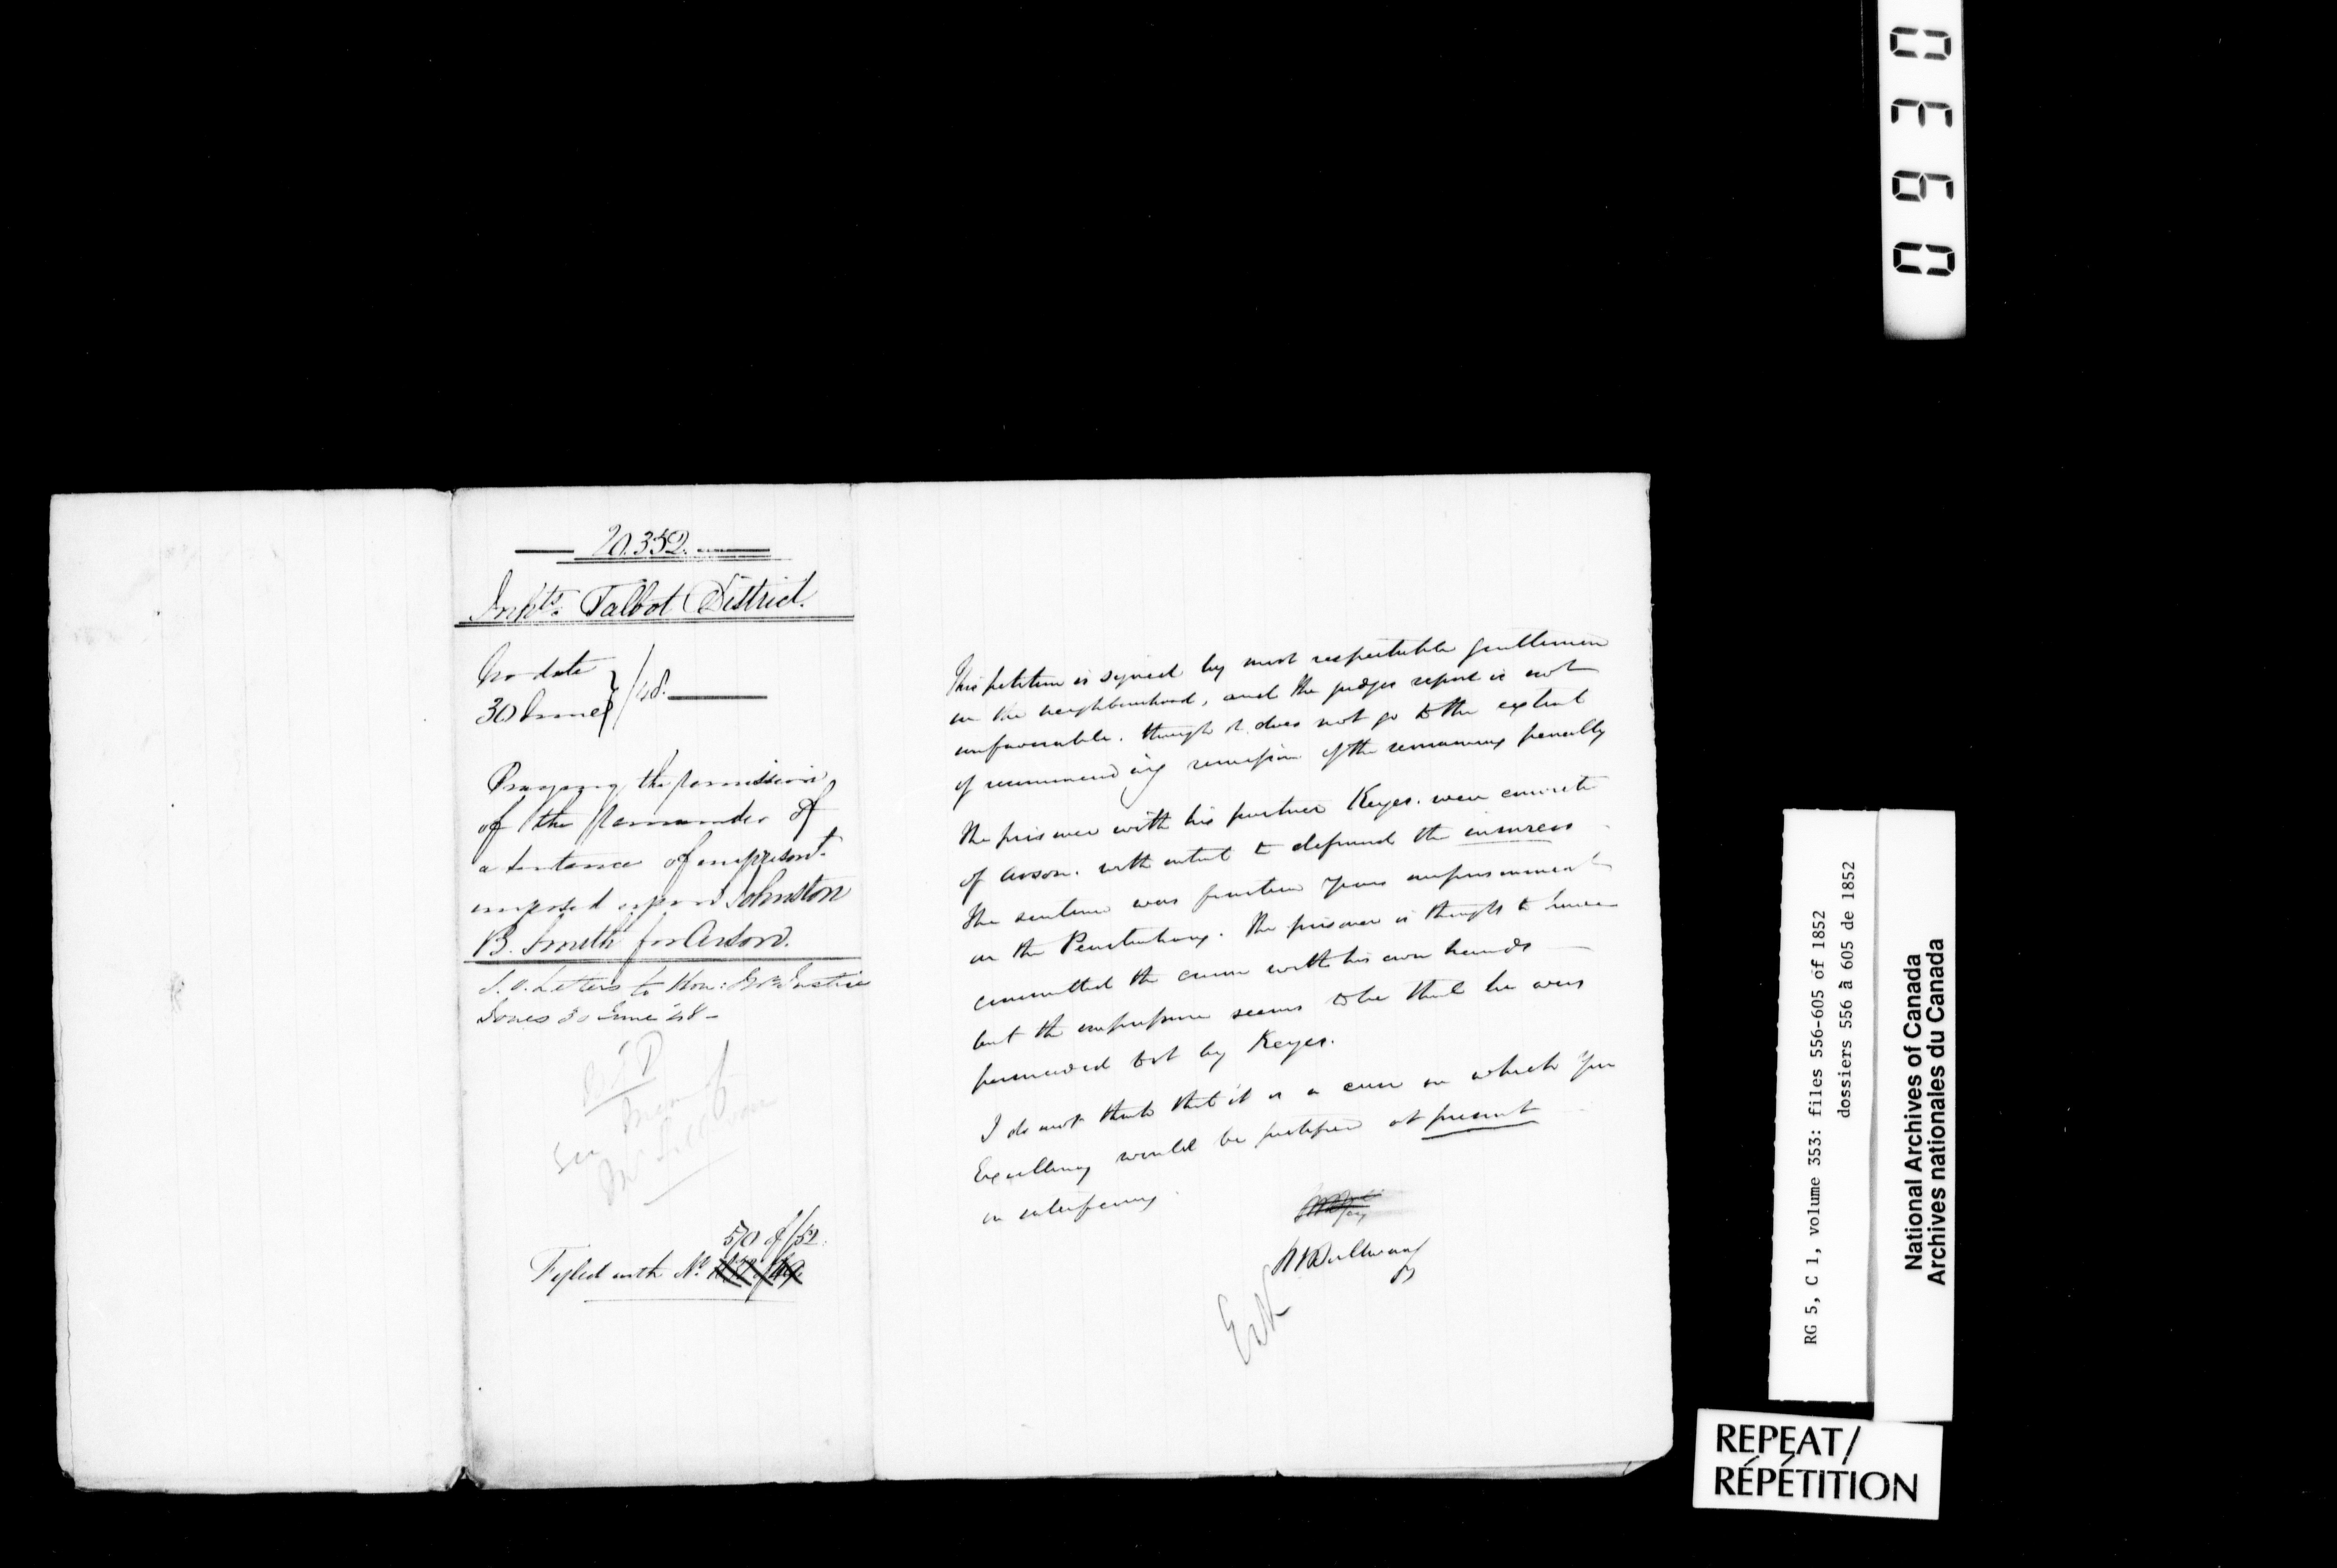 20.352.
Inhts. Talbot District.
No date
30 June } /48.
Praying the remission
of the remainder of
a sentence of imprisont.
imposed upon Johnston
B. Smith for Arson.
Letters to Hon: Mr Justice
Jones 30 June 48 -
570 of /52.
Fyled with No.
This petition is signed by most respectable gentlemen
in the neighbourhood, and the judges report is not
unfavourable. though it does not go to the extent
of recommending remission of the remaining penalty
The prisoner with his partner Keyes. were convicted
of Arson. with intent to defraud the insurers
The sentence was fourteen years imprisonment
in the Penitentiary. The prisoner is thought to have
committed the crime with his own hands
but the impression seems to be that he was
persuaded to it by Keyes.
I do not think that it is a case in which Your
Excellency would be justified at present
in interfering.
0360
RG 5, C 1, volume 353: files 556-605 of 1852
dossiers 556 à 605 de 1852
National Archives of Canada
Archives nationales du Canada
REPEAT/
RÉPÉTITION